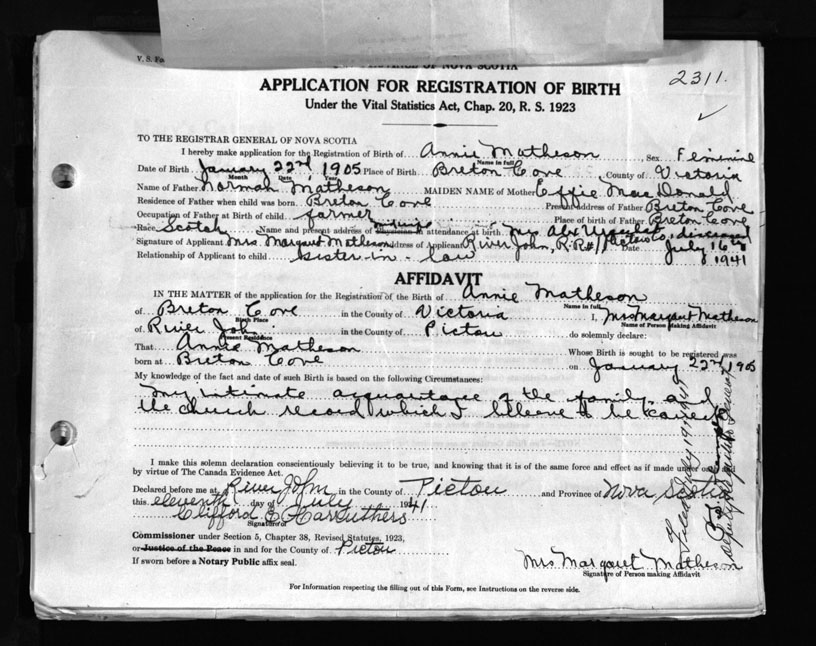 V. S. Fo
OF NOVA SCOTIA
2311.
APPLICATION FOR REGISTRATION OF BIRTH
Under the Vital Statistics Act, Chap. 20, R. S. 1923
TO THE REGISTRAR GENERAL OF NOVA SCOTIA
I hereby make application for the Registration of Birth of Annie Matheson Sex Feminine
Name in full
Date of Birth January 22nd 1905 Place of Birth Breton Cove County of Victoria
Month Date Year
Name of Father Norman Matheson MAIDEN NAME of Mother Effie MacDonald
Residence of Father when child was born. Breton Cove Present Address of Father Breton Cove
Occupation of Father at Birth of child. farmer Place of birth of Father Breton Cove
Race Scotch Name and present address of Physician in attendance at birth Mrs Alex Urquhart, deceased
Signature of Applicant Mrs. Margaret Matheson Address of Applicant River John, R.R#1 Pictou Co, Date July 16th
Relationship of Applicant to child sister-in-law 1941
AFFIDAVIT
IN THE MATTER of the application for the Registration of the Birth of Annie Matheson
Name in full
of Breton Cove in the County of Victoria I, Mrs Margaret Matheson
Birth Place Name of Person Making Affidavit
of River John in the County of Pictou do solemnly declare:
Present Residence
That Annie Matheson Whose Birth is sought to be registered was
born at Breton Cove on January 22nd 1905
My knowledge of the fact and date of such Birth is based on the following Circumstances:
My intimate acquaintance of the family, and
the church record which I believe to be correct
I make this solemn declaration conscientiously believing it to be true, and knowing that it is of the same force and effect as if made under oath and
by virtue of The Canada Evidence Act.
Declared before me at River John in the County of Pictou and Province of Nova Scotia
this eleventh day of July 1941
Clifford E Carruthers
Signature of
Commissioner under Section 5, Chapter 38, Revised Statutes, 1923,
or Justice of the Peace in and for the County of Pictou
If sworn before a Notary Public affix seal.
Mrs Margaret Matheson
Signature of Person making Affidavit
For Information respecting the filling out of this Form, see Instructions on the reverse side.